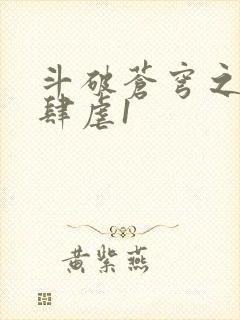 斗破苍穹之
肆虐1
黄紫燕